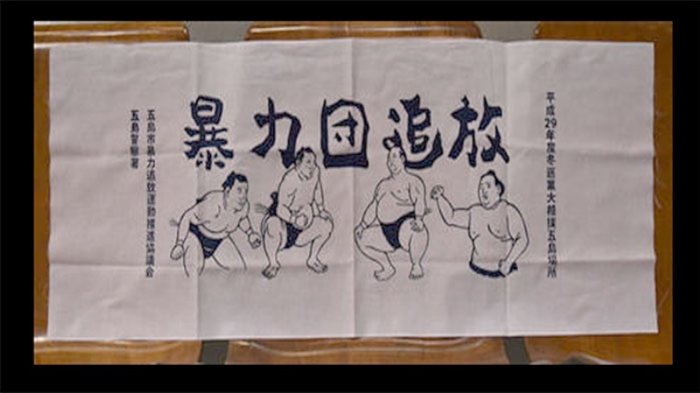 暴力団追放
平成29年度冬巡業大相撲五島場所
五島市暴力追放運動推進協議会
五島警察署